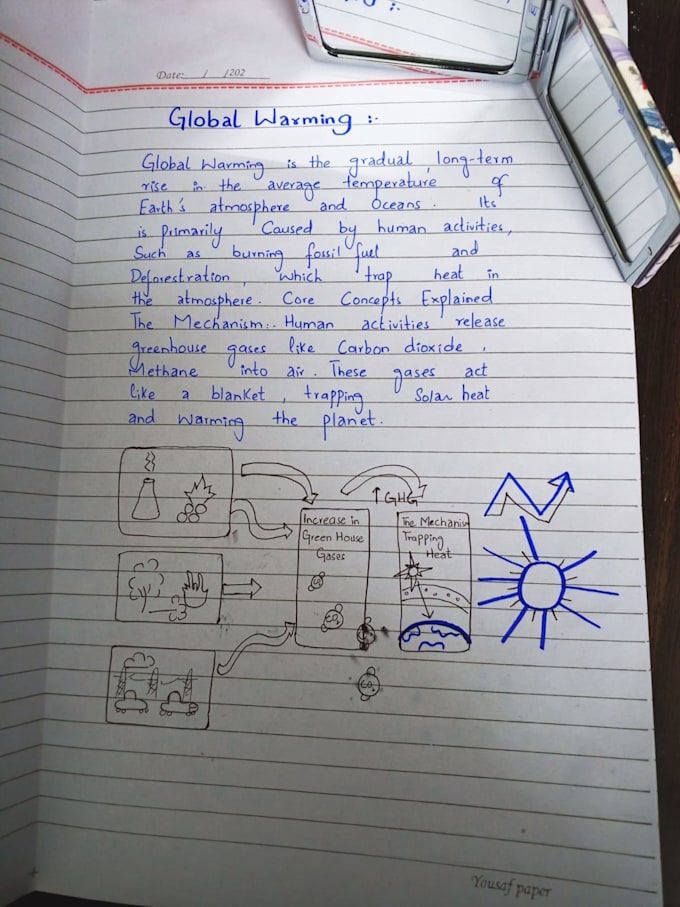 Date: / /202
Global Warming :-
Global Warming is the gradual, long-term
rise in the average temperature of
Earth's atmosphere and Oceans. Its
is primarily Caused by human activities,
Such as burning fossil fuel and
Deforestration, which trap heat in
the atmosphere. Core Concepts Explained
The Mechanism:. Human activities release
greenhouse gases like Carbon dioxide,
Methane into air. These gases act
like a blanket, trapping Solar heat
and warming the planet.
↑GHG
Increase in
Green House
Gases
The Mechanism
Trapping
Heat
CO₂
Yousaf paper